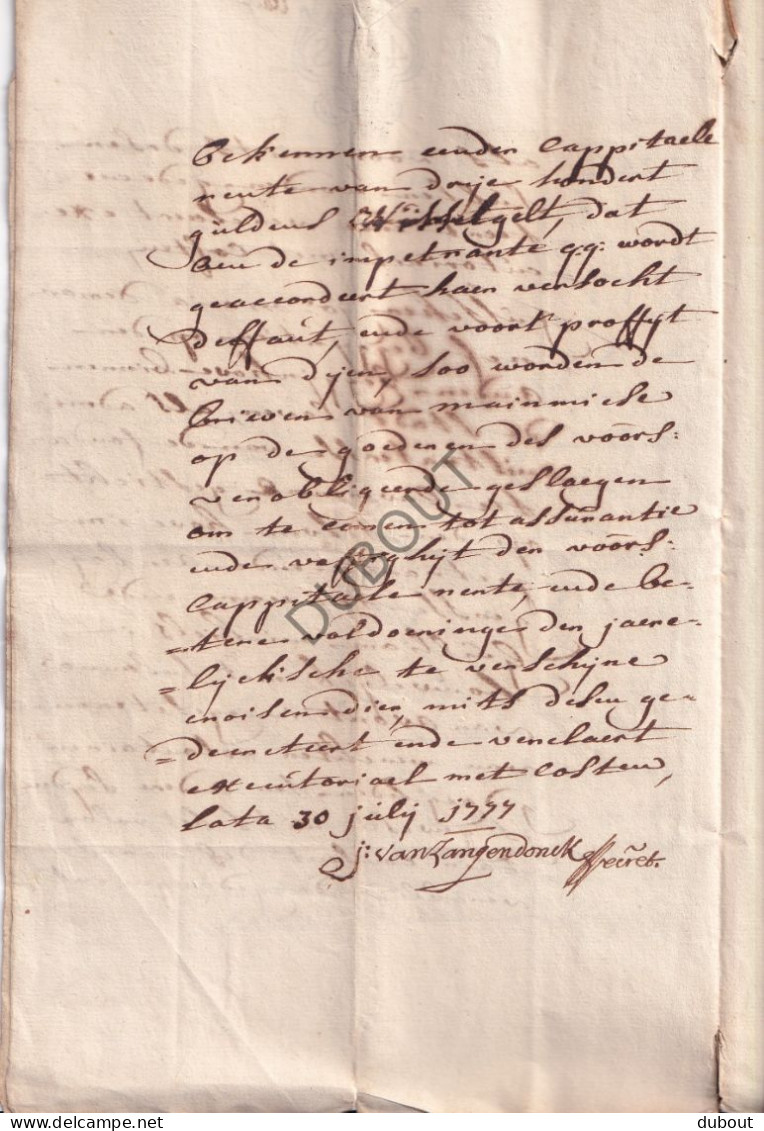 bekennen eender Cappitaele
rente van drije hondert
guldens Wisselgelt, dat
aen de impetrante q:q: wordt
geaccordeert haer versocht
deffaut, ende voort proffijt
van dijen, soo worden de
brieven van mainmise
op de goederen des voors:
verobligeerde geslaegen
om te canen tot assurantie
ende den voors:
Cappitaele rente, ende be-
=tere voldoeninge den jaere-
=lijckische te verschijne
croisen dier, mits desen ge-
=decreteert ende verclaert
executoriael met Costen,
Lata 30 julij 1777
j: van Langendonck Secret.
DUBOUT
dubout